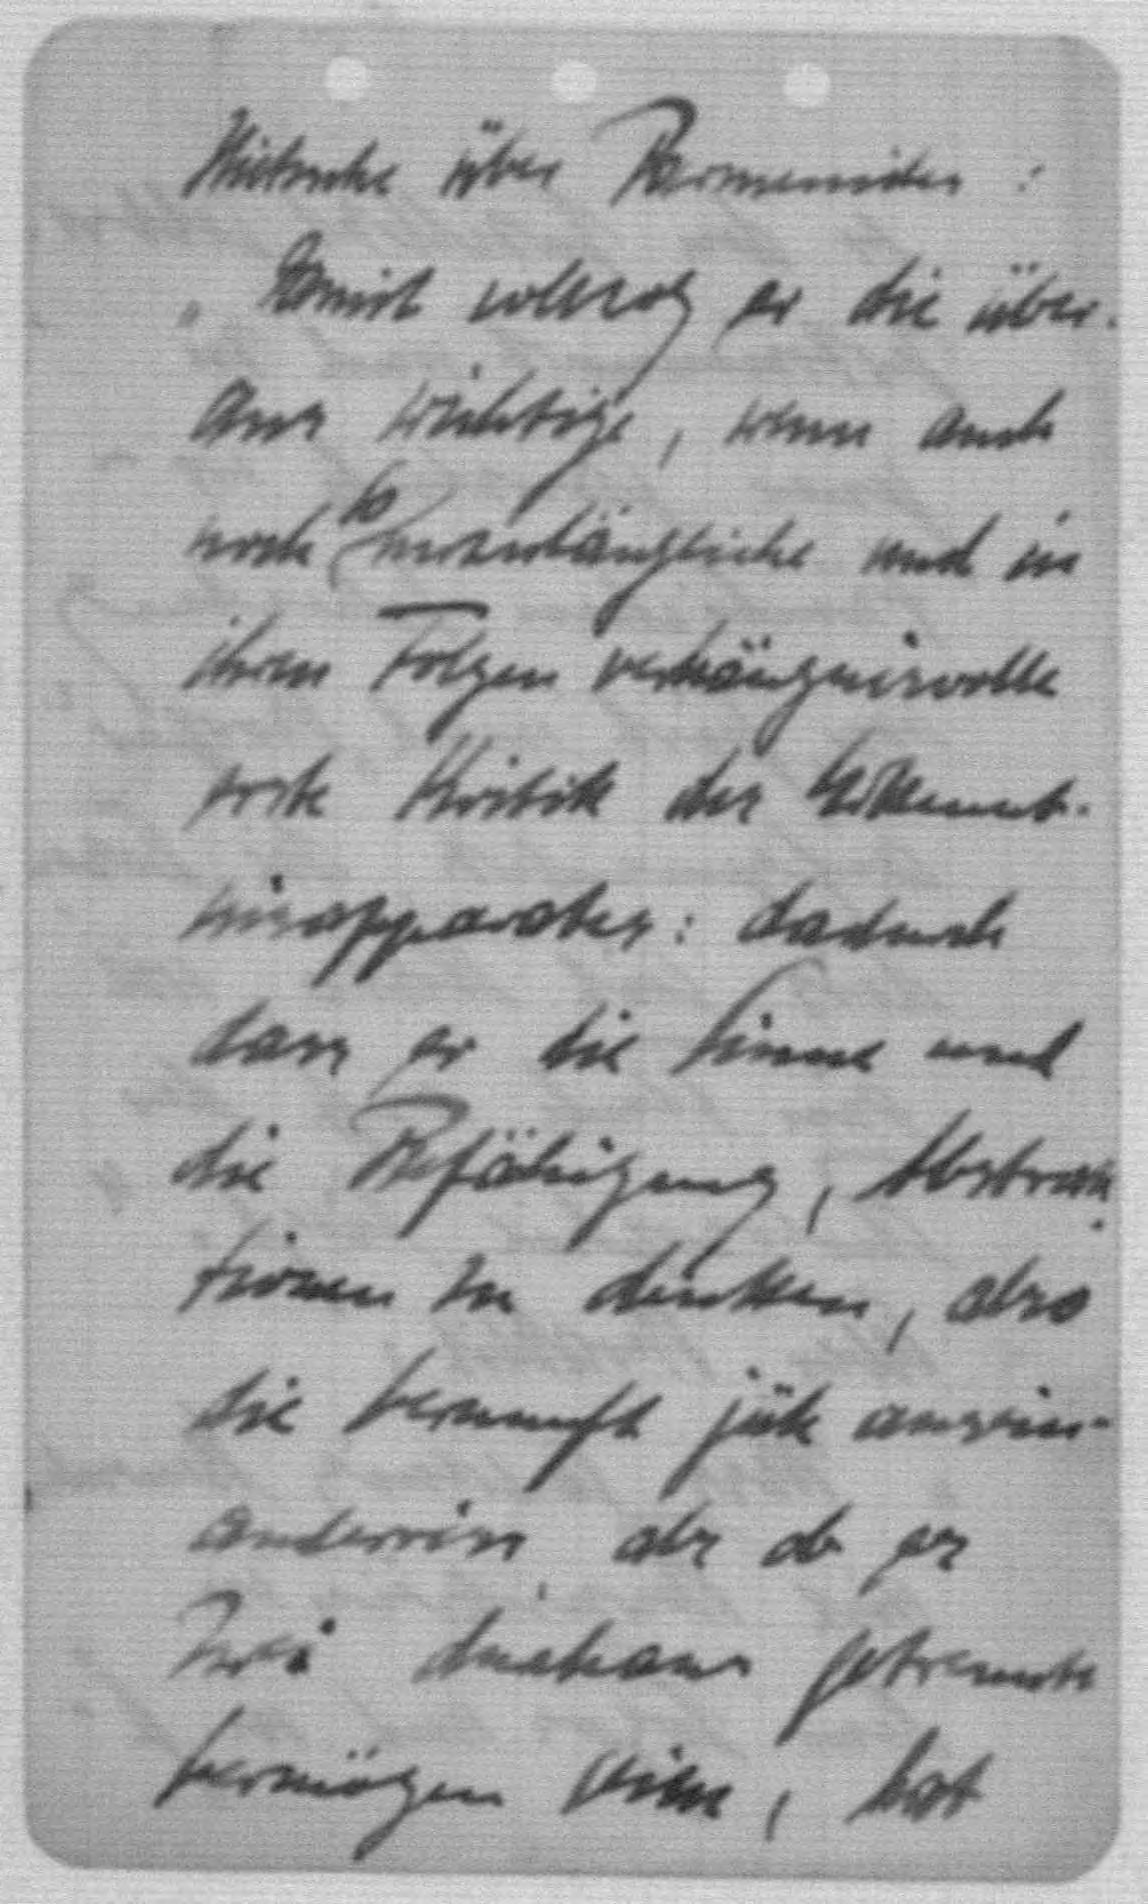 Nietzsche über Parmenides :
„ Damit vollzog er die über-
aus wichtige, wenn auch
noch so unzulängliche und in
ihren Folgen verhängnisvolle
erste Kritik des Erkennt-
nisapparates: dadurch
dass er die Sinne und
die Befähigung, Abstrak-
tionen zu denken, also
die Vernunft jäh ausein-
anderriss, als ob es
zwei durchaus getrennte
Vermögen seien, hat